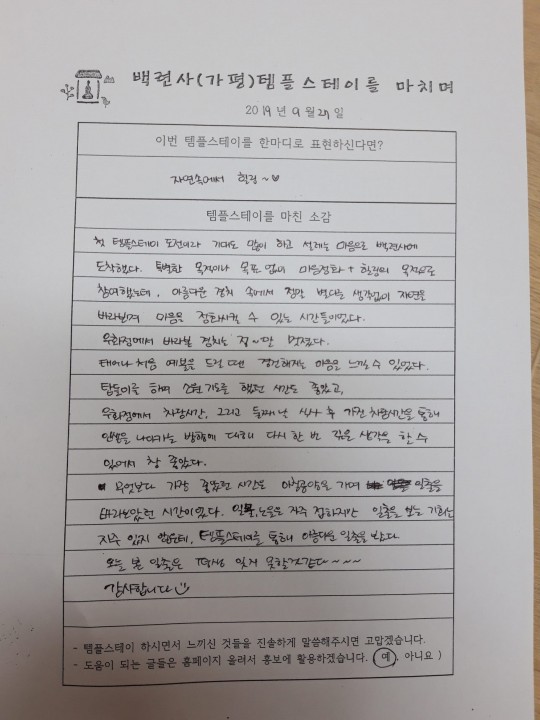 백련사(가평)템플스테이를 마치며
2019년 9월 27일
이번 템플스테이를 한마디로 표현하신다면?
자연속에서 힐링~♡
템플스테이를 마친 소감
첫 템플스테이 도전이라 기대도 많이 하고 설레는 마음으로 백련사에
도착했다. 특별한 목적이나 목표 없이 마음정화 + 힐링의 목적으로
참여했는데, 아름다운 경치 속에서 정말 별다른 생각없이 자연을
바라보며 마음을 정화시킬 수 있는 시간들이었다.
유화정에서 바라본 경치는 정~말 멋졌다.
태어나 처음 예불을 드릴 땐 경건해지는 마음을 느낄 수 있었다.
탑돌이를 하며 소원기도를 했던 시간도 좋았고,
유화정에서 차담시간, 그리고 둘째날 식사 후 가진 차담시간을 통해
인생을 나아가는 방향에 대해 다시 한 번 깊은 생각을 할 수
있어서 참 좋았다.
무엇보다 가장 좋았던 시간은 아침공양을 가며 일출을
바라보았던 시간이었다. 일몰,노을은 자주 접하지만 일출을 보는 기회는
자주 있지 않은데, 템플스테이를 통해 아름다운 일출을 봤다.
오늘 본 일출은 평생 잊지 못할것같다~~~~
감사합니다
- 템플스테이 하시면서 느끼신 것들을 진솔하게 말씀해주시면 고맙겠습니다.
- 도움이 되는 글들은 홈페이지 올려서 홍보에 활용하겠습니다. (예, 아니요 )